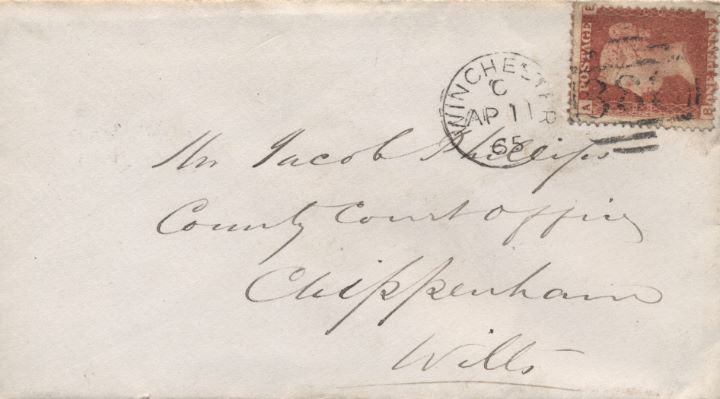 WINCHESTER
C
AP 11
65
POSTAGE
ONE PENNY
Mr Jacob Phillips
County Court Office
Chippenham
Wilts